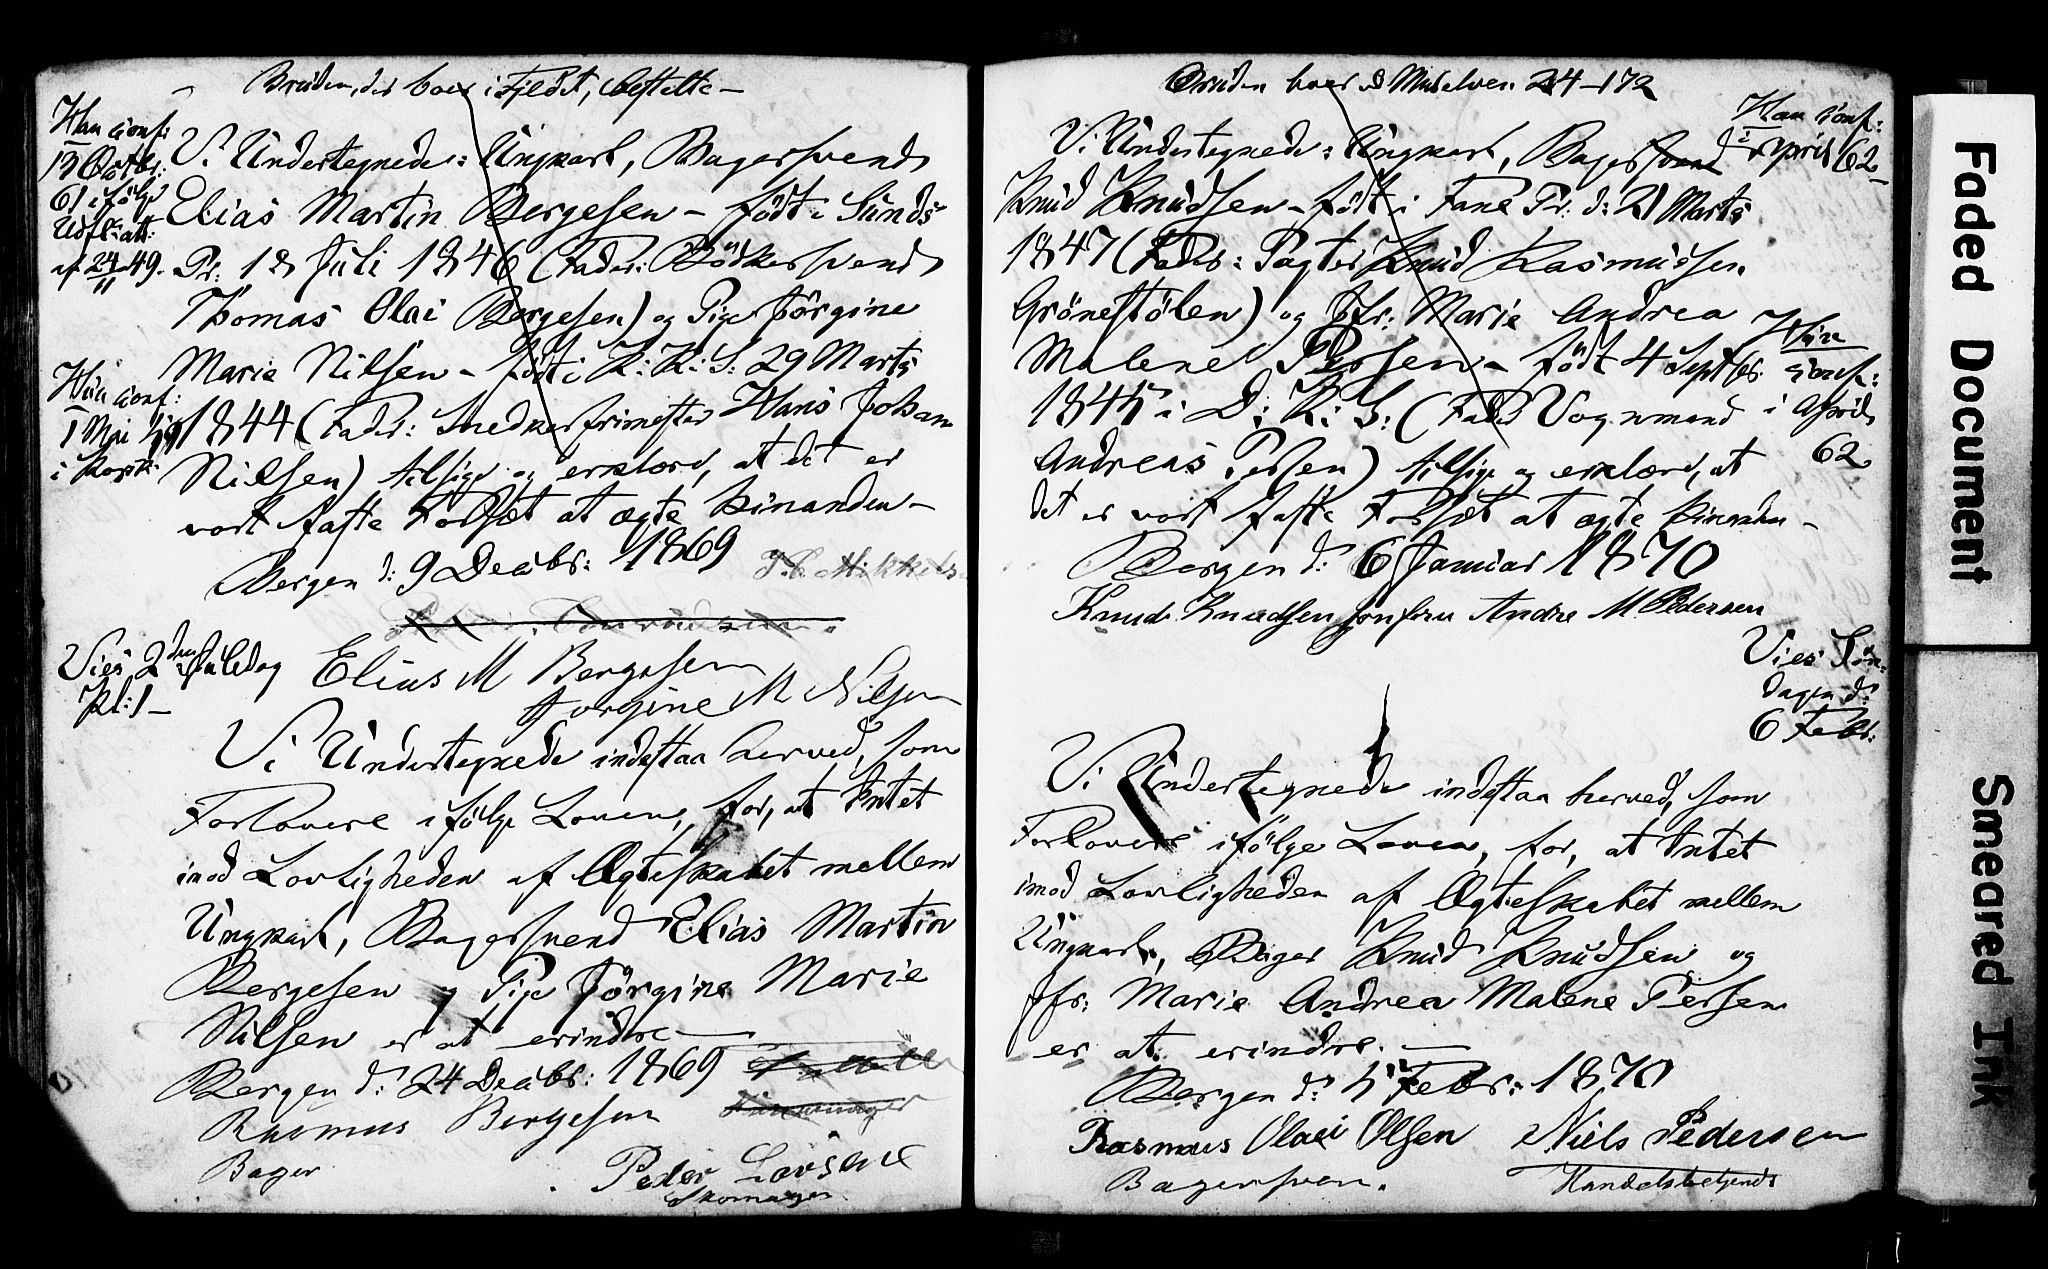 Bruden, der boer i Fjeldet, bestelte —
Han conf:
13 Octbr:
61 ifölge
Udfl: att:
af 24/11 49.
Vi Undertegnede: Ungkarl, Bagersvend
Elias Martin Bergesen — födt i Sunds
Pr: 18 Juli 1846 (Fader: Bödkersvend
Thomas Olai Bergesen) og Pige Jörgine
Marie Nilsen — födt i K: K: S: 29 Marts
1844 (Fader: Snedkerfrimester Hans Johan
Nilsen) tilsige og erklære, at det er
vort faste Forsæt at ægte hinanden —
Bergen d: 9 Decbr: 1869
Hun conf:
1 Mai 59
i Korsk:
Vies 2den Juledag
Kl: 1 —
Elias M Bergesen
Jorgine M Nilsen
Vi Undertegnede indestaa herved, som
Forlovere ifölge Loven, for, at Intet
imod Lovligheden af Ægteskabet mellem
Ungkarl, Bagersvend Elias Martin
Bergesen og Pige Jörgine Marie
Nilsen er at erindre —
Bergen d: 24 Decbr: 1869
Rasmus Bergesen
Bager
Peder Larsen
Skomager
Bruden boer i Muselven 24 — 172
Han conf:
i April 62
Vi Undertegnede: Ungkarl, Bagersvend
Knud Knudsen — födt i Fane Pr: d: 21 Marts
1847 (Fader: Pagter Knud Rasmussen
Grönestölen) og Jfr: Marie Andrea
Malene Persen — födt 4 Septbr.
1845 i D: K: S: (Fader Vognmand
Andreas Persen) tilsige og erklære, at
det er vort faste Forsæt at ægte hinanden —
Bergen d: 6 Januar 1870
Hun
conf:
i April
62
Knud Knudsen jomfru Andre M Pedersen
Vies Sön-
dagen d:
6 Febr:
Vi Undertegnede indestaa herved, som
Forlovere ifölge Loven, for, at Intet
imod Lovligheden af Ægteskabet mellem
Ungkarl, Bager Knud Knudsen og
Jfr: Marie Andrea Malene Persen
er at erindre. —
Bergen d: 5 Febr: 1870
Rasmus Olai Olsen Niels Pedersen
Bagersven. Handelsbetjendt
Faded Document
Smeared Ink